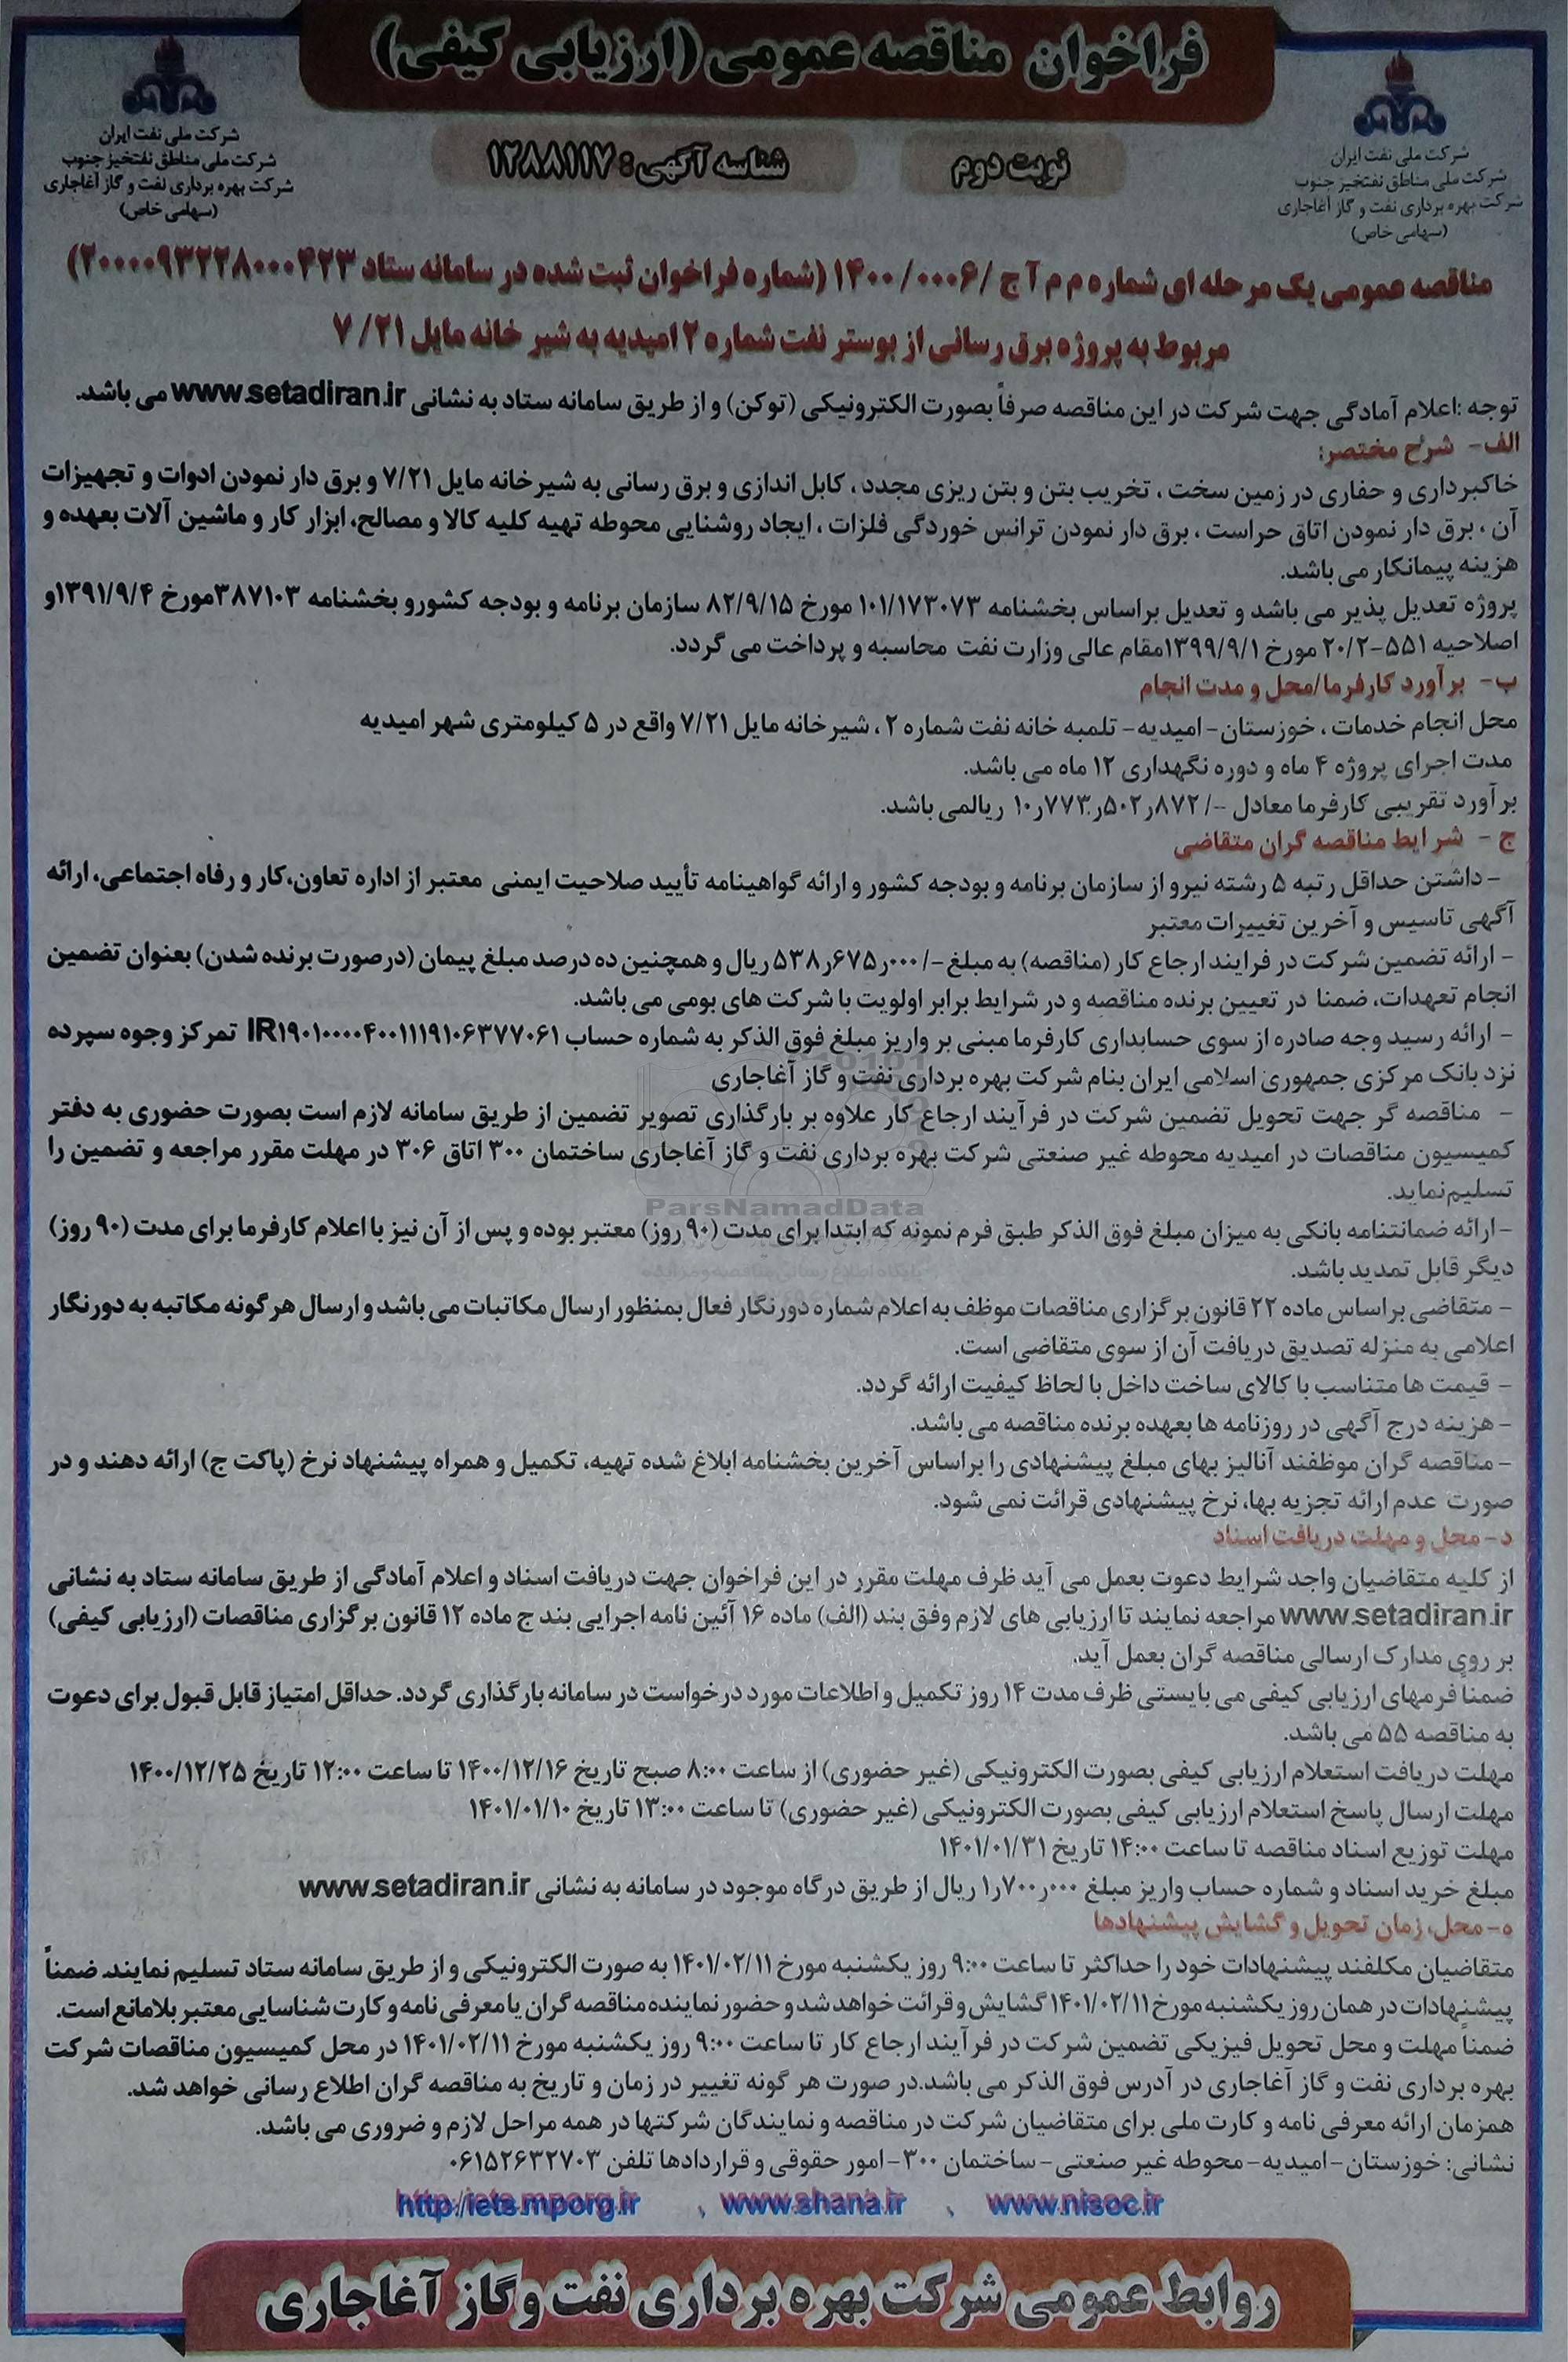 فراخوان مناقصه عمومی (ارزیابی کیفی)
شرکت ملی نفت ایران
شرکت ملی مناطق نفتخیز جنوب
شرکت بهره برداری نفت و گاز آغاجاری
(سهامی خاص)
نوبت دوم
شناسه آگهی: ۱۲۸۸۱۱۷
شرکت ملی نفت ایران
شرکت ملی مناطق نفتخیز جنوب
شرکت بهره برداری نفت و گاز آغاجاری
(سهامی خاص)
مناقصه عمومی یک مرحله ای شماره م م آ ج /۰۰۰۶/ ۱۴۰۰ (شماره فراخوان ثبت شده در سامانه ستاد ۲۰۰۰۰۹۳۲۲۸۰۰۰۴۲۳)
مربوط به پروژه برق رسانی از بوستر نفت شماره ۲ امیدیه به شیر خانه مایل ۷/۲۱
توجه :اعلام آمادگی جهت شرکت در این مناقصه صرفاً بصورت الکترونیکی (توکن) و از طریق سامانه ستاد به نشانی www.setadiran.ir می باشد.
الف- شرح مختصر:
خاکبرداری و حفاری در زمین سخت ، تخریب بتن و بتن ریزی مجدد ، کابل اندازی و برق رسانی به شیرخانه مایل ۷/۲۱ و برق دار نمودن ادوات و تجهیزات
آن ، برق دار نمودن اتاق حراست ، برق دار نمودن ترانس خوردگی فلزات ، ایجاد روشنایی محوطه تهیه کلیه کالا و مصالح، ابزار کار و ماشین آلات بعهده و
هزینه پیمانکار می باشد.
پروژه تعدیل پذیر می باشد و تعدیل براساس بخشنامه ۱۰۱/۱۷۳۰۷۳ مورخ ۸۲/۹/۱۵ سازمان برنامه و بودجه کشورو بخشنامه ۳۸۷۱۰۳مورخ ۱۳۹۱/۹/۴و
اصلاحیه ۵۵۱-۲۰/۲ مورخ ۱۳۹۹/۹/۱مقام عالی وزارت نفت محاسبه و پرداخت می گردد.
ب- برآورد کارفرما/محل و مدت انجام
محل انجام خدمات ، خوزستان- امیدیه- تلمبه خانه نفت شماره ۲ ، شیرخانه مایل ۷/۲۱ واقع در ۵ کیلومتری شهر امیدیه
مدت اجرای پروژه ۴ ماه و دوره نگهداری ۱۲ ماه می باشد.
برآورد تقریبی کارفرما معادل -/۱۰٫۷۷۳٫۵۰۲٫۸۷۲ ریالمی باشد.
ج - شرایط مناقصه گران متقاضی
- داشتن حداقل رتبه ۵ رشته نیرو از سازمان برنامه و بودجه کشور و ارائه گواهینامه تأیید صلاحیت ایمنی معتبر از اداره تعاون،کار و رفاه اجتماعی، ارائه
آگهی تاسیس و آخرین تغییرات معتبر
- ارائه تضمین شرکت در فرایند ارجاع کار (مناقصه) به مبلغ -/۵۳۸٫۶۷۵٫۰۰۰ ریال و همچنین ده درصد مبلغ پیمان (درصورت برنده شدن) بعنوان تضمین
انجام تعهدات، ضمنا در تعیین برنده مناقصه و در شرایط برابر اولویت با شرکت های بومی می باشد.
- ارائه رسید وجه صادره از سوی حسابداری کارفرما مبنی بر واریز مبلغ فوق الذکر به شماره حساب IR۱۹۰۱۰۰۰۰۴۰۰۱۱۱۹۱۰۶۳۷۷۰۶۱ تمرکز وجوه سپرده
نزد بانک مرکزی جمهوری اسلامی ایران بنام شرکت بهره برداری نفت و گاز آغاجاری
- مناقصه گر جهت تحویل تضمین شرکت در فرآیند ارجاع کار علاوه بر بارگذاری تصویر تضمین از طریق سامانه لازم است بصورت حضوری به دفتر
کمیسیون مناقصات در امیدیه محوطه غیر صنعتی شرکت بهره برداری نفت و گاز آغاجاری ساختمان ۳۰۰ اتاق ۳۰۶ در مهلت مقرر مراجعه و تضمین را
تسلیم نماید.
ParsNamadData
-ارائه ضمانتنامه بانکی به میزان مبلغ فوق الذکر طبق فرم نمونه که ابتدا برای مدت (۹۰ روز) معتبر بوده و پس از آن نیز با اعلام کارفرما برای مدت (۹۰ روز)
دیگر قابل تمدید باشد.
- متقاضی براساس ماده ۲۲ قانون برگزاری مناقصات موظف به اعلام شماره دورنگار فعال بمنظور ارسال مکاتبات می باشد و ارسال هرگونه مکاتبه به دورنگار
اعلامی به منزله تصدیق دریافت آن از سوی متقاضی است.
- قیمت ها متناسب با کالای ساخت داخل با لحاظ کیفیت ارائه گردد.
- هزینه درج آگهی در روزنامه ها بعهده برنده مناقصه می باشد.
- مناقصه گران موظفند آنالیز بهای مبلغ پیشنهادی را براساس آخرین بخشنامه ابلاغ شده تهیه، تکمیل و همراه پیشنهاد نرخ (پاکت ج) ارائه دهند و در
صورت عدم ارائه تجزیه بها، نرخ پیشنهادی قرائت نمی شود.
د- محل و مهلت دریافت اسناد
از کلیه متقاضیان واجد شرایط دعوت بعمل می آید ظرف مهلت مقرر در این فراخوان جهت دریافت اسناد و اعلام آمادگی از طریق سامانه ستاد به نشانی
www.setadiran.ir مراجعه نمایند تا ارزیابی های لازم وفق بند (الف) ماده ۱۶ آئین نامه اجرایی بند ج ماده ۱۲ قانون برگزاری مناقصات (ارزیابی کیفی)
بر روی مدارک ارسالی مناقصه گران بعمل آید.
ضمناً فرمهای ارزیابی کیفی می بایستی ظرف مدت ۱۴ روز تکمیل و اطلاعات مورد درخواست در سامانه بارگذاری گردد. حداقل امتیاز قابل قبول برای دعوت
به مناقصه ۵۵ می باشد.
مهلت دریافت استعلام ارزیابی کیفی بصورت الکترونیکی (غیر حضوری) از ساعت ۸:۰۰ صبح تاریخ ۱۴۰۰/۱۲/۱۶ تا ساعت ۱۲:۰۰ تاریخ ۱۴۰۰/۱۲/۲۵
مهلت ارسال پاسخ استعلام ارزیابی کیفی بصورت الکترونیکی (غیر حضوری) تا ساعت ۱۳:۰۰ تاریخ ۱۴۰۱/۰۱/۱۰
مهلت توزیع اسناد مناقصه تا ساعت ۱۴:۰۰ تاریخ ۱۴۰۱/۰۱/۳۱
مبلغ خرید اسناد و شماره حساب واریز مبلغ ۱٫۷۰۰٫۰۰۰ ریال از طریق درگاه موجود در سامانه به نشانی www.setadiran.ir
ه- محل، زمان تحویل و گشایش پیشنهادها
متقاضیان مکلفند پیشنهادات خود را حداکثر تا ساعت ۹:۰۰ روز یکشنبه مورخ ۱۴۰۱/۰۲/۱۱ به صورت الکترونیکی و از طریق سامانه ستاد تسلیم نمایند. ضمناً
پیشنهادات در همان روز یکشنبه مورخ ۱۴۰۱/۰۲/۱۱ گشایش و قرائت خواهد شد و حضور نماینده مناقصه گران با معرفی نامه و کارت شناسایی معتبر بلامانع است.
ضمناً مهلت و محل تحویل فیزیکی تضمین شرکت در فرآیند ارجاع کار تا ساعت ۹:۰۰ روز یکشنبه مورخ ۱۴۰۱/۰۲/۱۱ در محل کمیسیون مناقصات شرکت
بهره برداری نفت و گاز آغاجاری در آدرس فوق الذکر می باشد.در صورت هر گونه تغییر در زمان و تاریخ به مناقصه گران اطلاع رسانی خواهد شد.
همزمان ارائه معرفی نامه و کارت ملی برای متقاضیان شرکت در مناقصه و نمایندگان شرکتها در همه مراحل لازم و ضروری می باشد.
نشانی: خوزستان-امیدیه-محوطه غیر صنعتی-ساختمان ۳۰۰-امور حقوقی و قراردادها تلفن ۰۶۱۵۲۶۳۲۷۰۳
www.nisoc.ir ، www.shana.ir ، http://iets.mporg.ir
روابط عمومی شرکت بهره برداری نفت و گاز آغاجاری